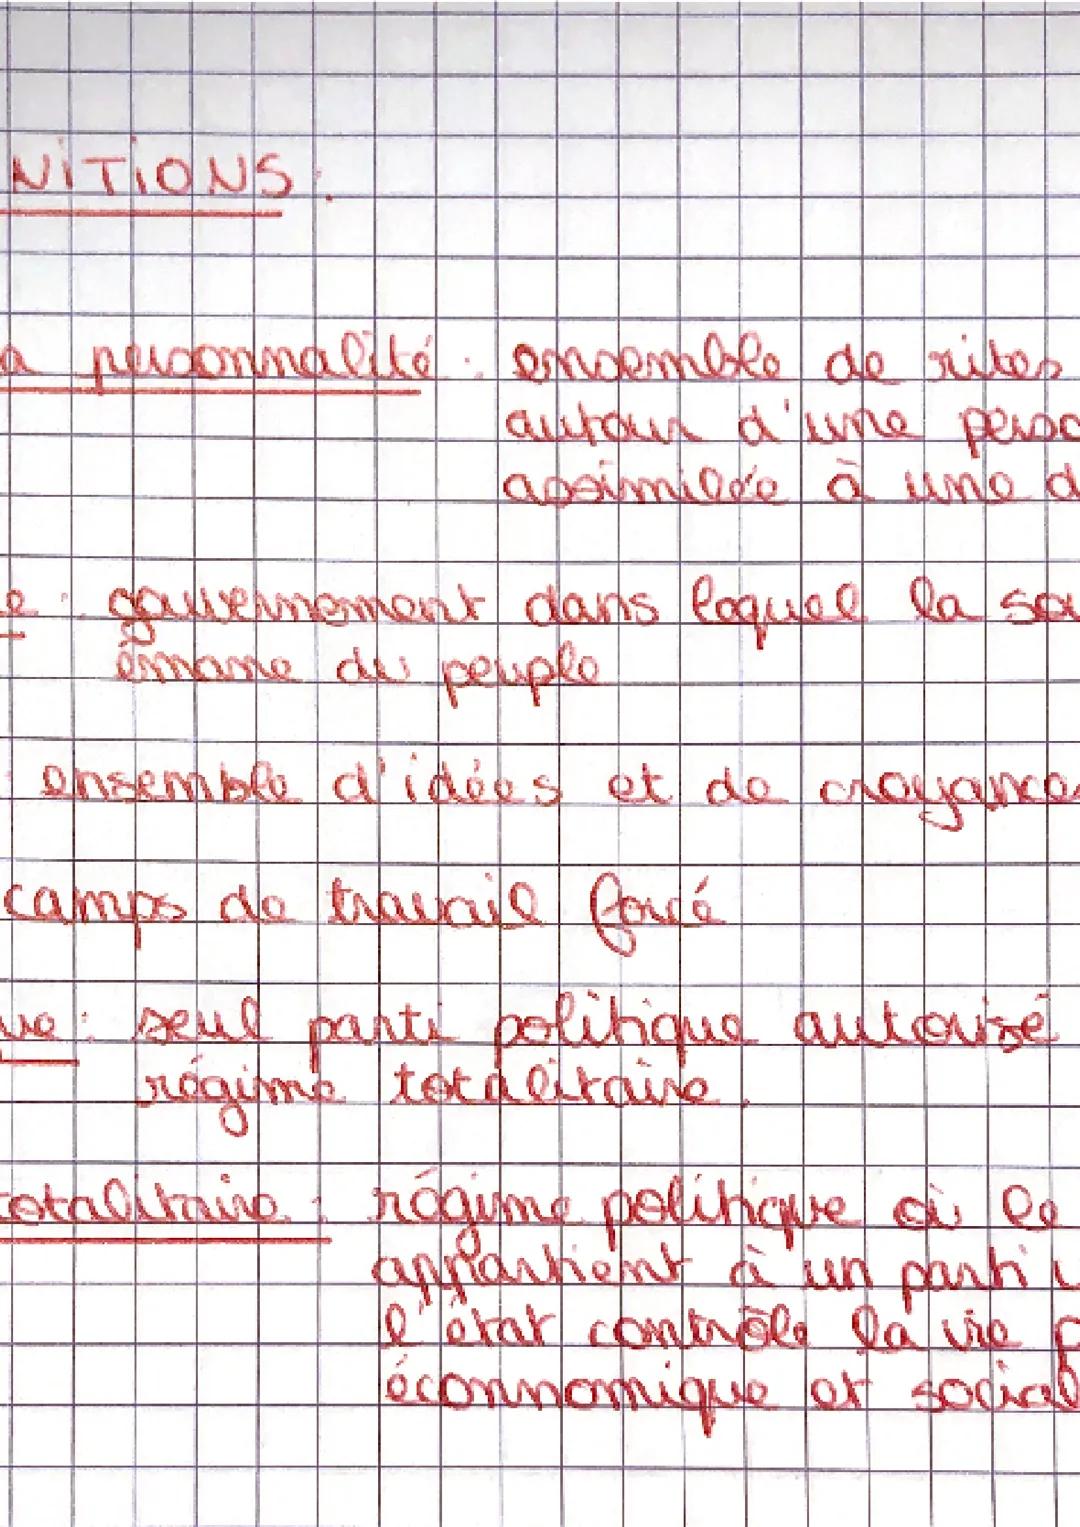 NITIONS :
a personnalité : ensemble de rites
autour d'une perso
assimilée à une d
e : gouvernement dans lequel la so
émane du peuple
: ensemble d'idées et de croyances
camps de travail forcé
ue : seul parti politique autorisé
régime totalitaire.
totalitaire : régime politique où le
appartient à un parti u
l'état contrôle la vie p
éconnomique et social